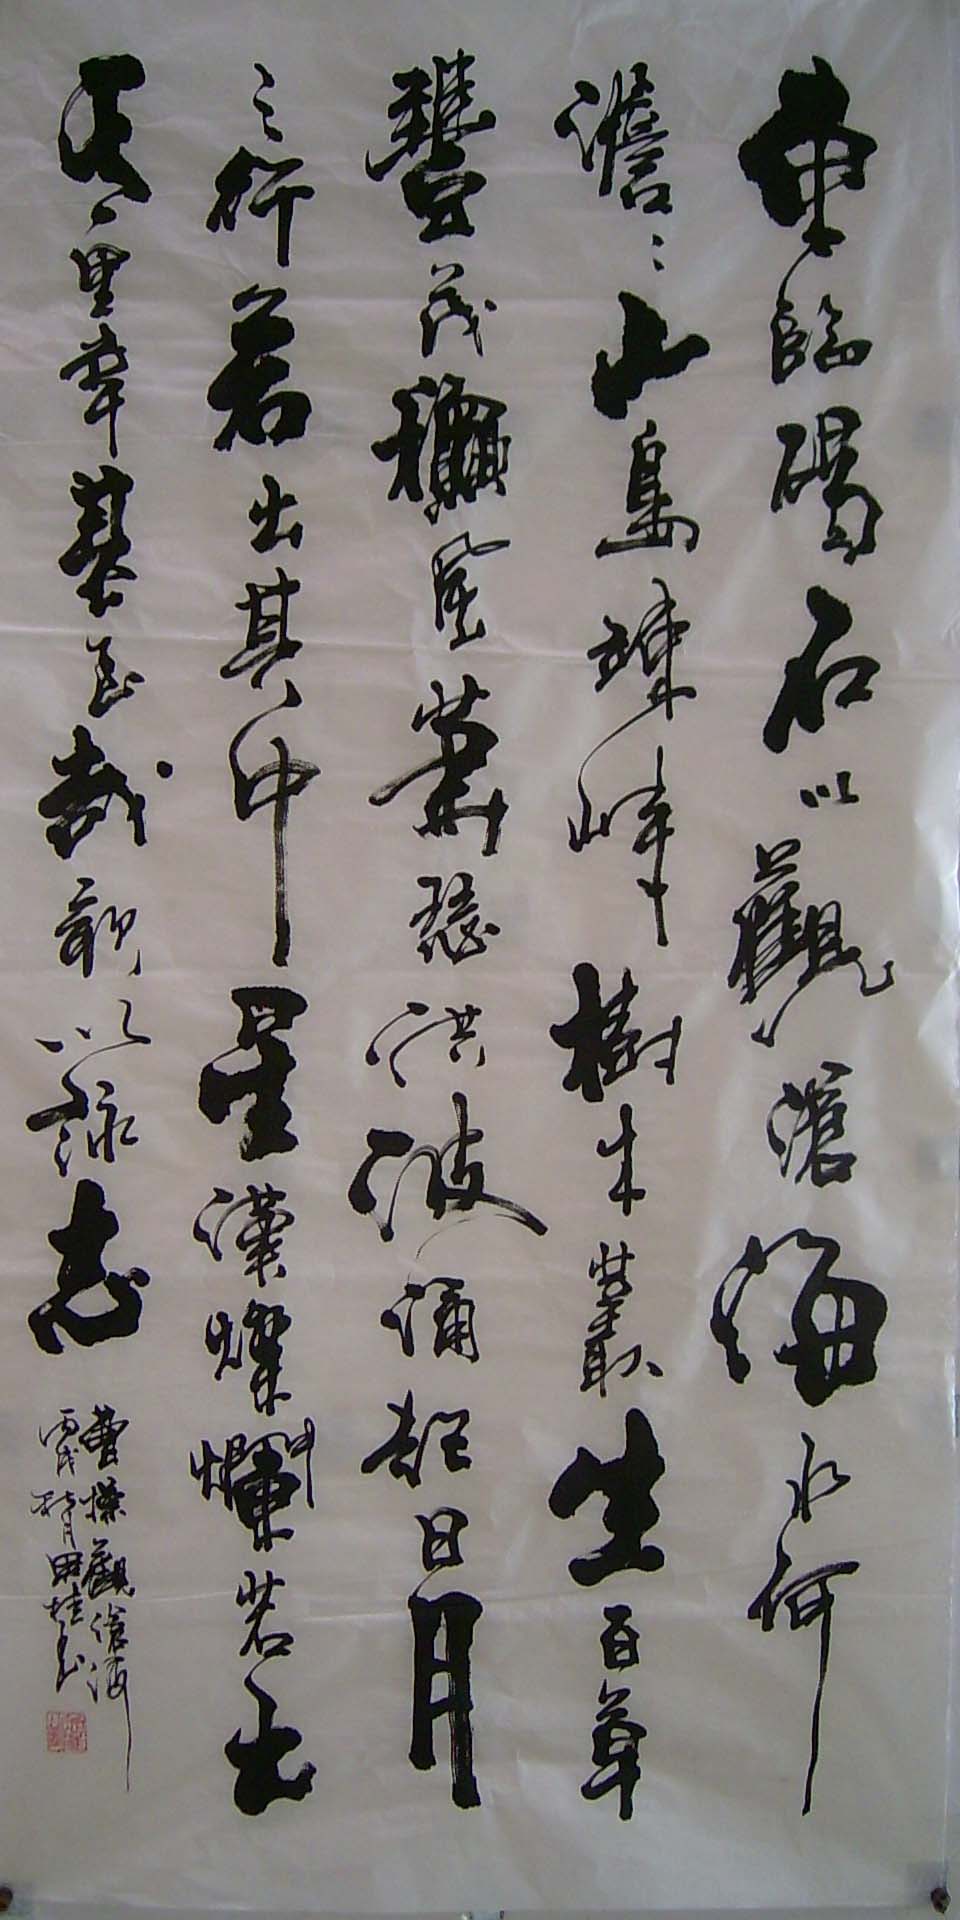 東臨碣石以觀滄海水何
澹〻山島竦峙樹木叢生百草
豐茂龝風蕭瑟洪波涌起日月
之行若出其中星漢燦爛若出
其里幸甚至哉歌以詠志
曹操觀滄海
丙戌 月